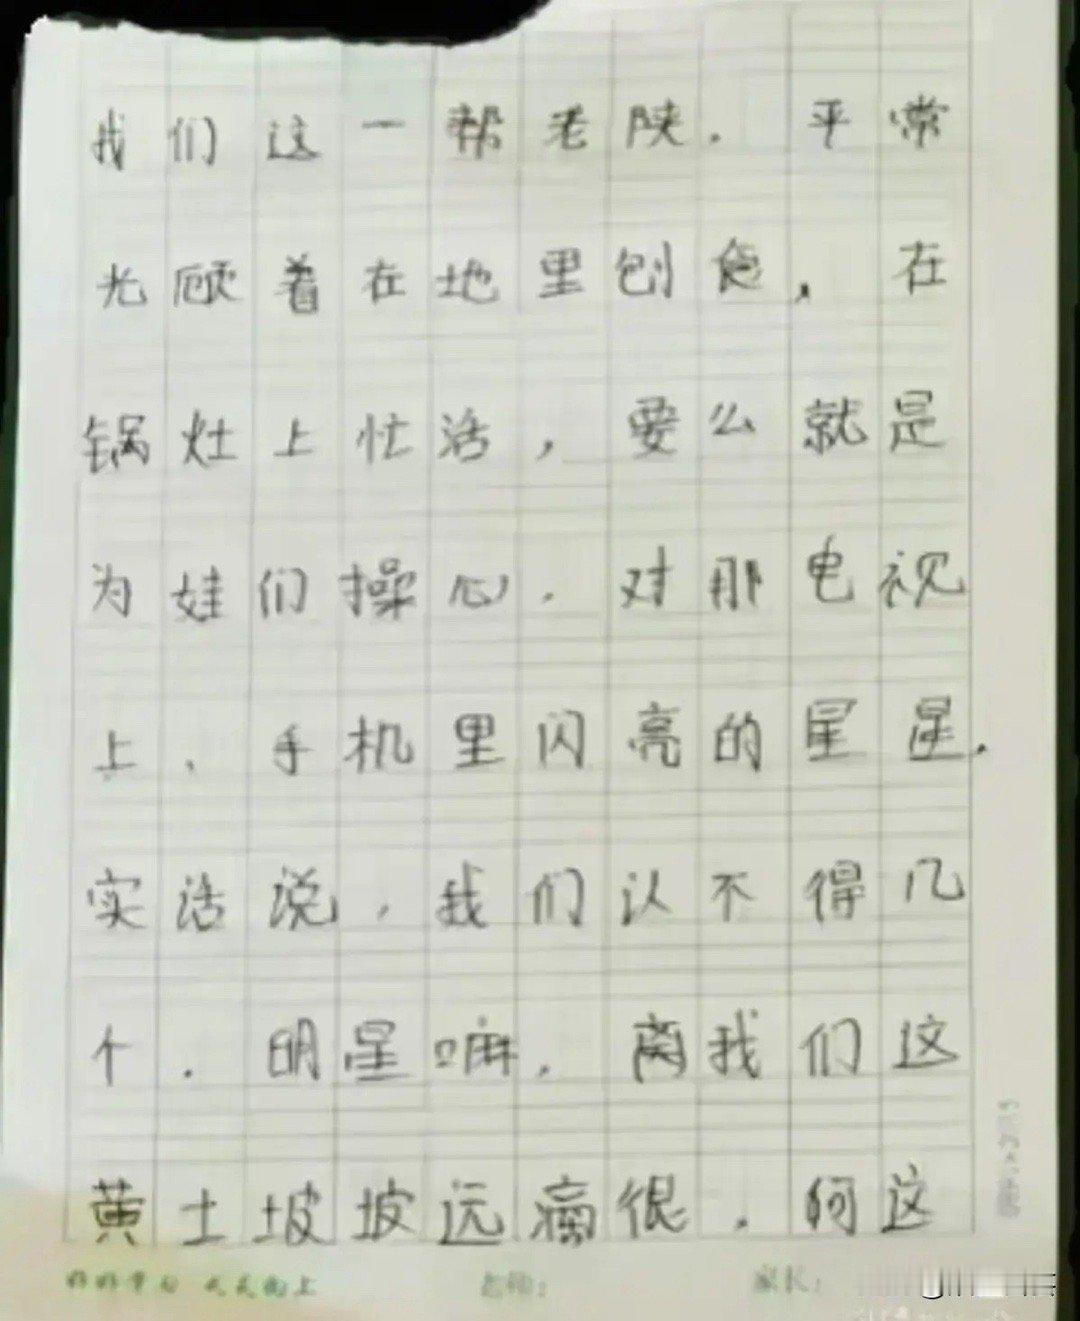 我们这一帮老陕．平常
光顾着在地里刨食，在
锅灶上忙活，要么就是
为娃们操心．对那电视
上、手机里闪亮的星星．
实话说，我们认不得几
个．明星嘛．离我们这
黄土坡坡远滴很．何这
好好学习 天天向上 老师： 家长：